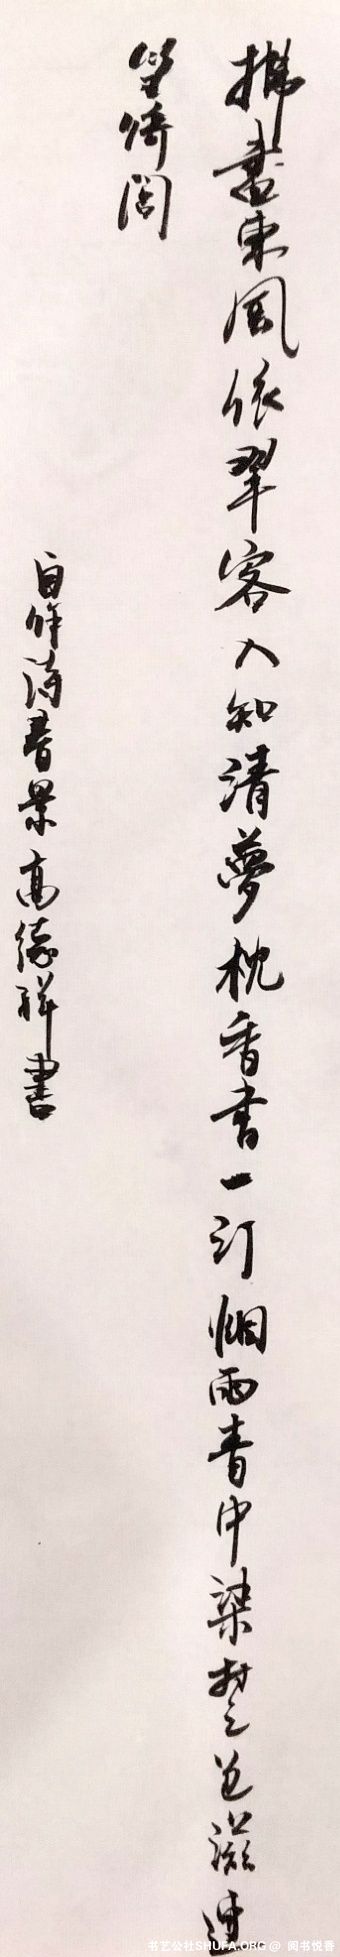 拂書東風依翠客入知清夢枕香書一汀烟雨青中染楚色滋速
坐倚閣
自作詩春景 高德祥書
书艺公社SHUFA.ORG @ 阅书悦香